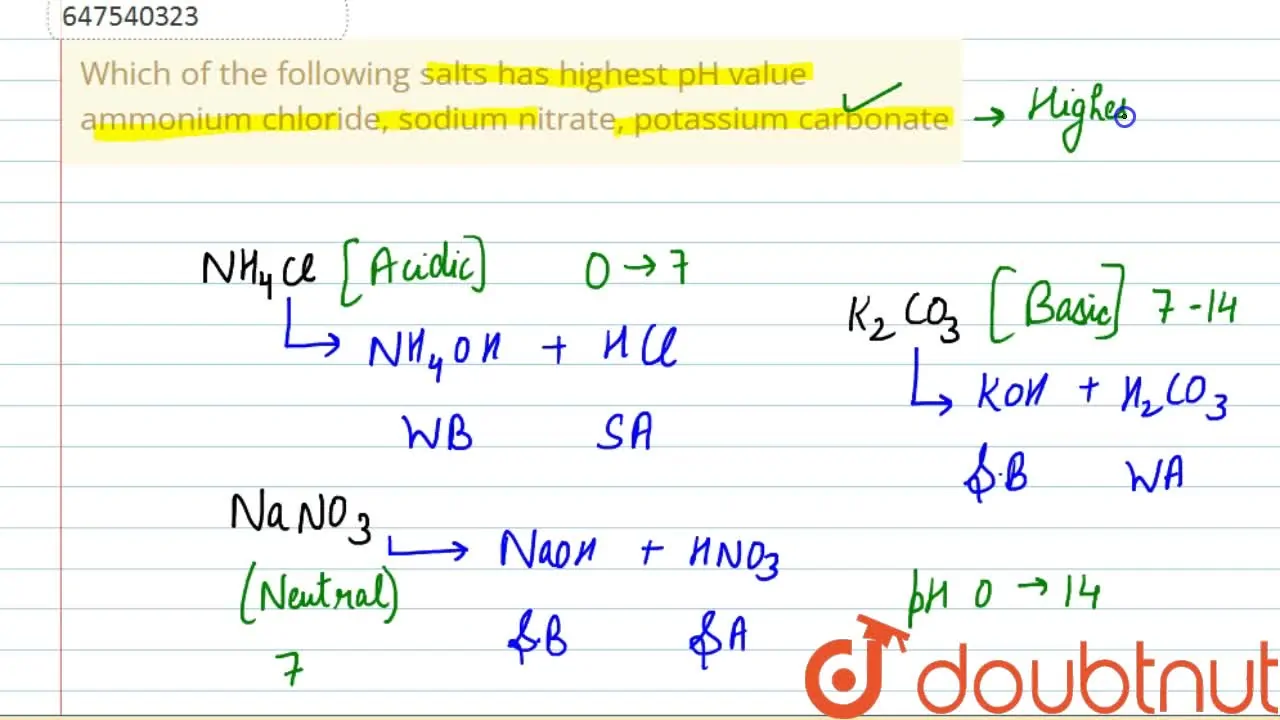 647540323
Which of the following salts has highest pH value
ammonium chloride, sodium nitrate, potassium carbonate → Highes
NH4Cl [Acidic] 0 → 7
NH4OH + HCl
WB SA
K2CO3 [Basic] 7-14
KOH + H2CO3
S.B WA
NaNO3
NaOH + HNO3
(Neutral)
S.B SA
7
pH 0 → 14
doubtnut